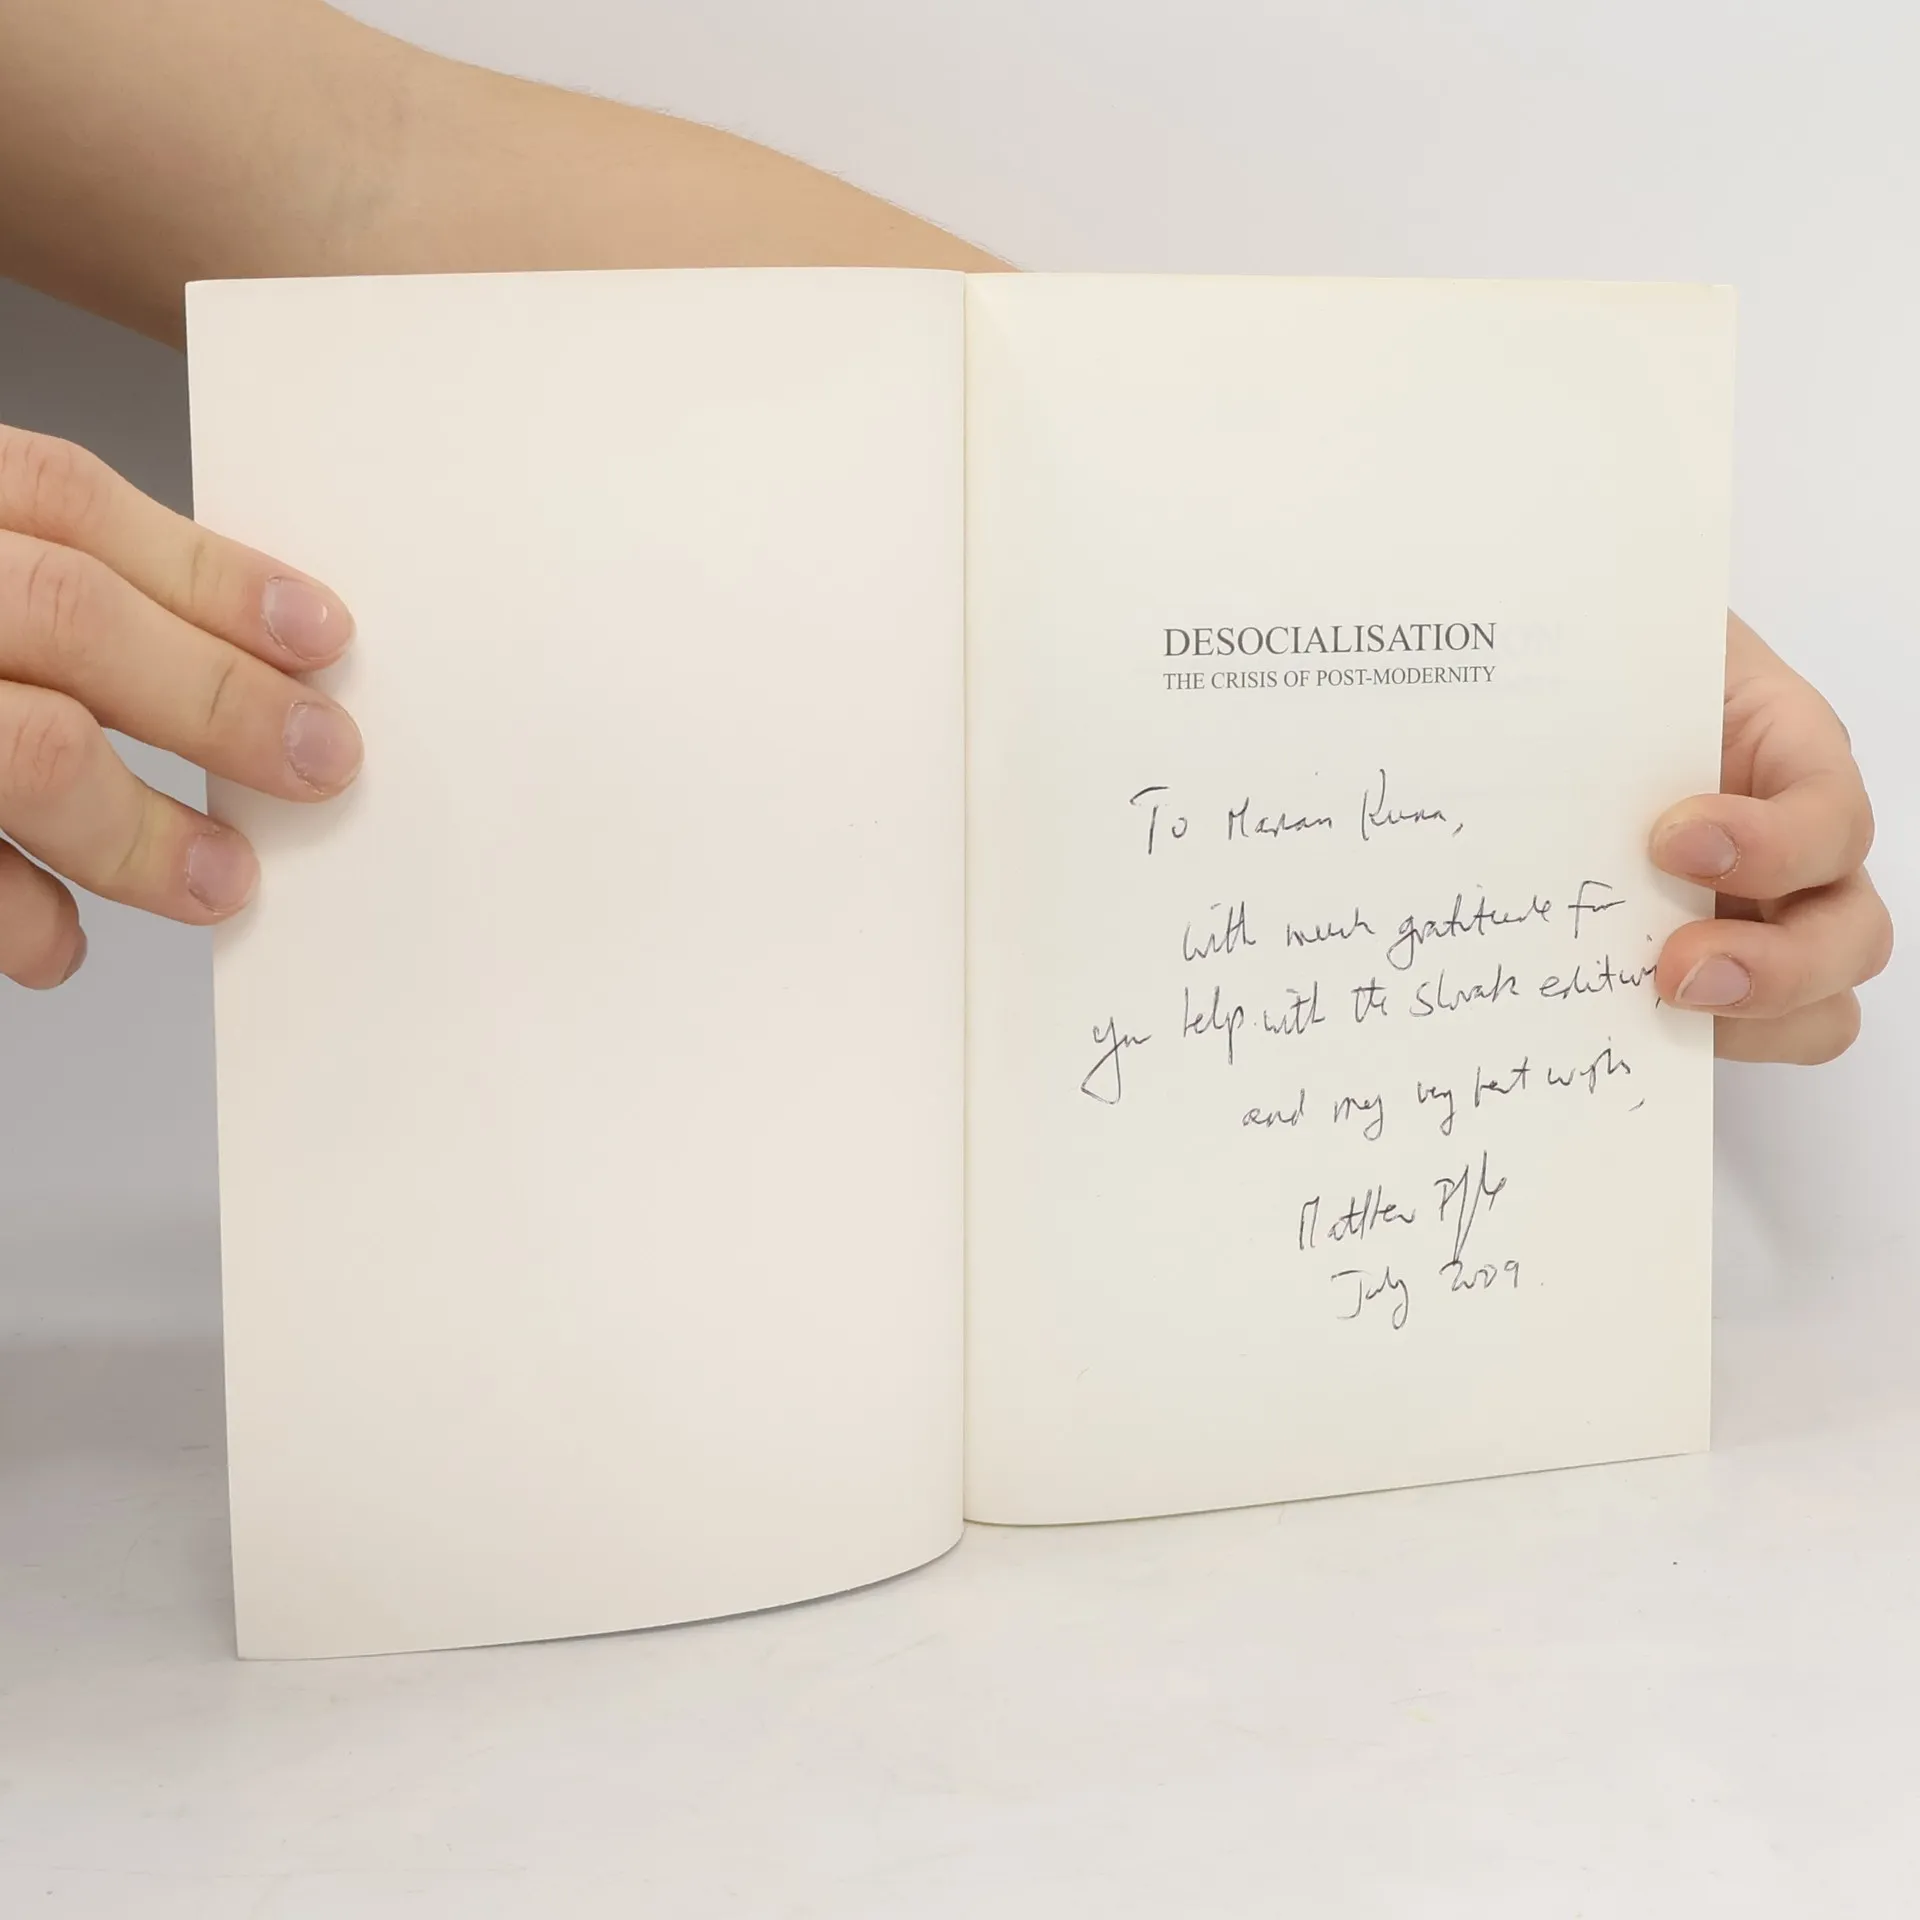 DESOCIALISATION
THE CRISIS OF POST-MODERNITY
To Marian Kuna,
with much gratitude for
your help with the Slovak edition,
and my very best wishes,
Matthew
July 2009.